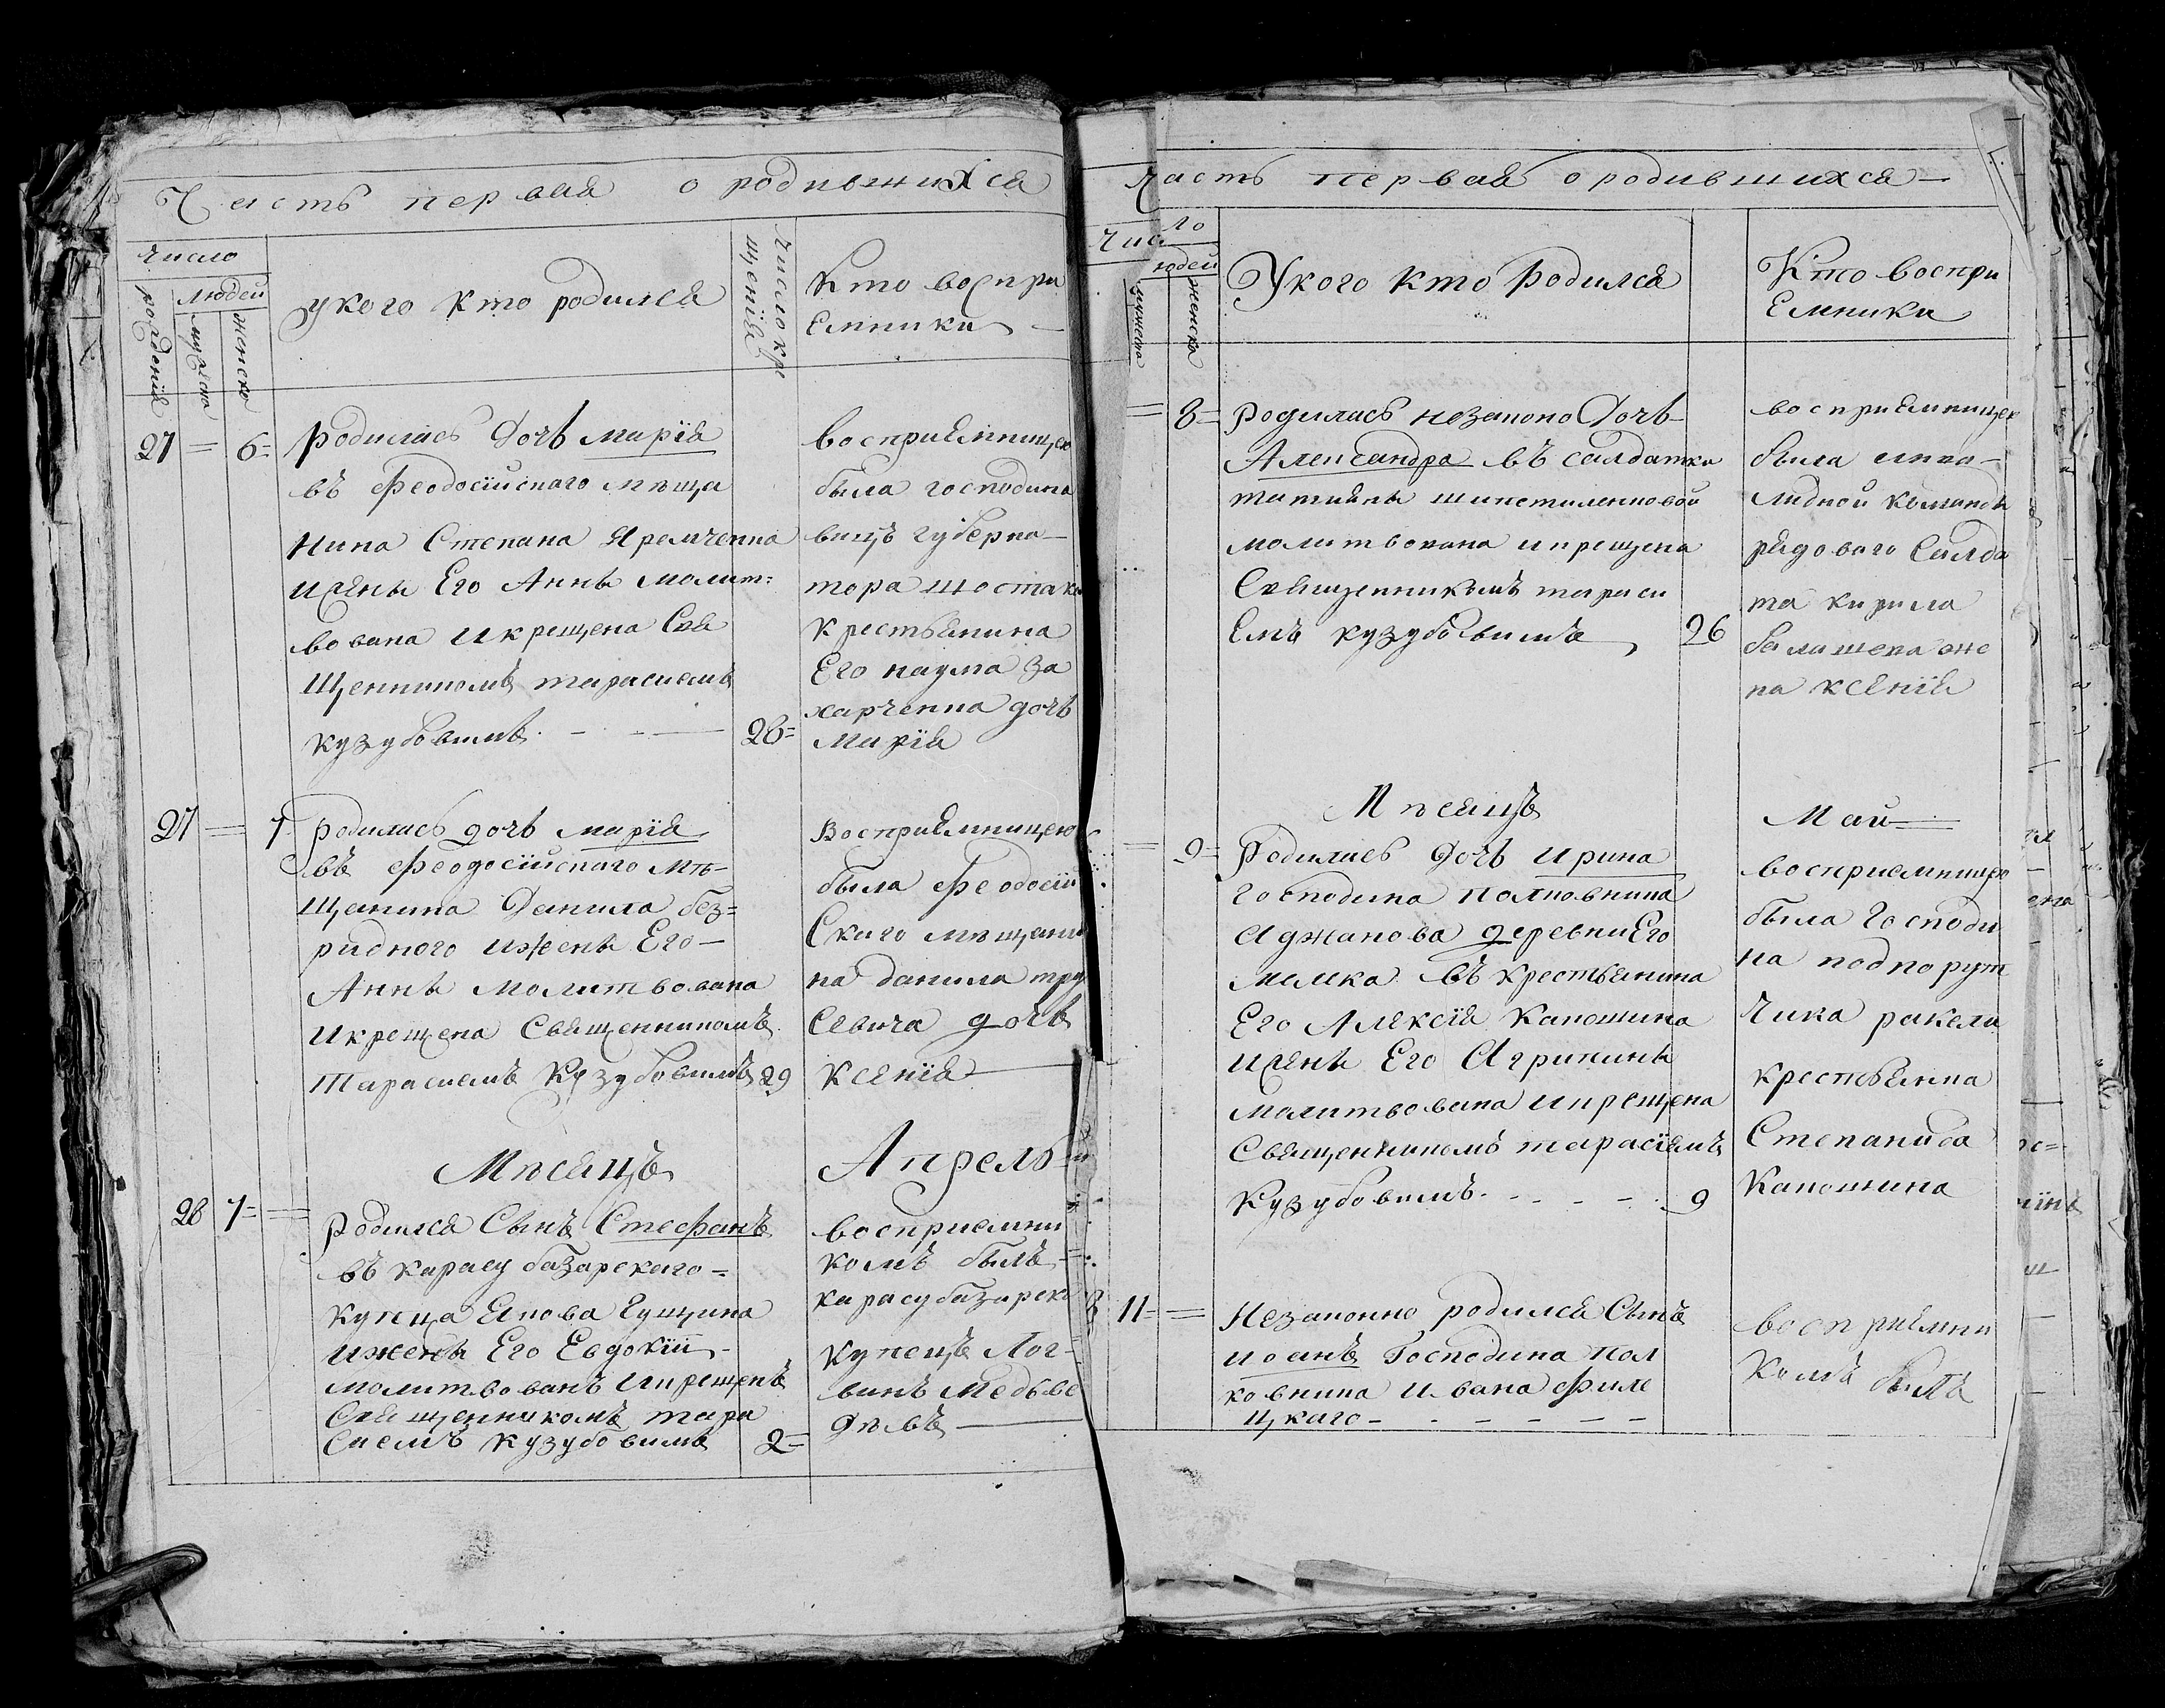 Часть первая о родившихся
число
людей
рождения
мужеска
женска
у кого кто родился
число кре
щения
Кто воспри
Емники
27 = 6 = родилась Дочь мария
въ феодосiйскаго мѣща
нина Степана Яремченка
ижены Его Анны молит=
вована икрещена Свя
щенникомъ тарасиемъ
кузубовимъ 28=
восприемницею
была господина
вицъ губерна-
тора шостака
Крестьянина
Его наума за
харченка дочь
Марiя
27 = 7 родилась дочь марiя
въ феодосiйскаго мѣ-
щанина Данила без=
ридного ижены Его-
Анны молитвована
икрещена Священникомъ
Тарасиемъ Кузубовимъ 29
восприемницею
была феодосiй
Скаго мѣщани
на данила тру
севича дочь
ксенiя
Мѣсяцъ Апрель
28 7= = Родился Сынъ Стефанъ
въ карасубазарскаго=
купца Якова Гущина
ижены Его Евдокiи
молитвованъ икрещенъ
Священникомъ тара
сиемъ кузубовимъ 2=
восприемни
комъ былъ=
карасубазарск
купецъ Лог-
винъ Медьве
дѣвъ
Часть первая ородившихся
Число
людей
мужеска
женска
Укого кто Родился
Кто воспри
Емники
= 8= Родилась незаконо Дочь
Александра въ салдатки
татияны
молитвована икрещена
Священникомъ тараси
Емъ кузубовимъ 26
восприемницею
была инва-
лидной команды
рядоваго Салда
та кирила
балашева же
на ксенiя
Мѣсяцъ Май
= 9= Родилась Дочь ирина
господина полковника
Аджанова деревни Его
мамка въ крестьянина
Его Алексiя Капошина
ижены Его Агрипины
Молитвована икрещена
Священникомъ тарасiемъ
Кузубовимъ 9
восприемницею
была Господи
на подпорут
чика ракели
крестьянка
Степанида
Капошина
11= = Незаконно родился Сынъ
иоанъ Господина пол
ковника ивана филе
цкаго
восприемни
комъ былъ